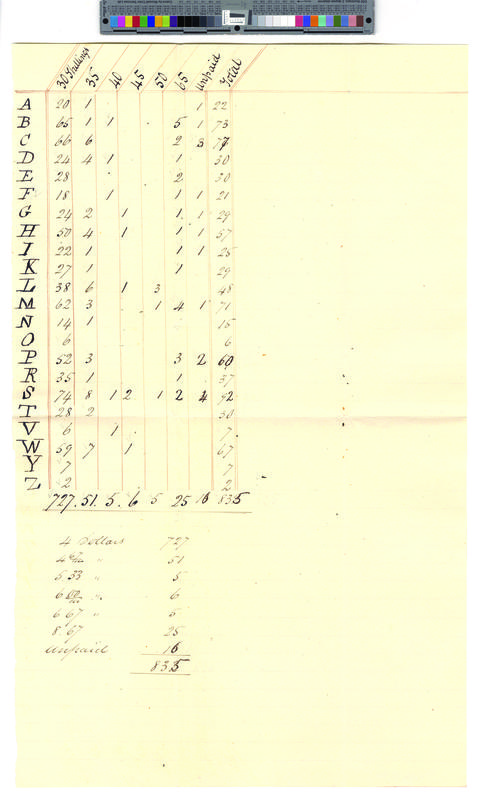 30 Shillings 35 40 45 50 65 unpaid Total
A 20 1 1 22
B 65 1 1 5 1 73
C 66 6 2 3 77
D 24 4 1 1 30
E 28 2 30
F 18 1 1 1 21
G 24 2 1 1 1 29
H 50 4 1 1 1 57
I 22 1 1 1 25
K 27 1 1 29
L 38 6 1 3 48
M 62 3 1 4 1 71
N 14 1 15
O 6 6
P 52 3 3 2 60
R 35 1 1 37
S 74 8 1 2 1 2 4 92
T 28 2 30
V 6 1 7
W 59 7 1 67
Y 7 7
Z 2 2
727. 51. 5. 6 5 25 16 835
4 Dollars 727
51
5.33 " 5
6 " 6
6 67 " 5
8.67 25
Unpaid 16
835